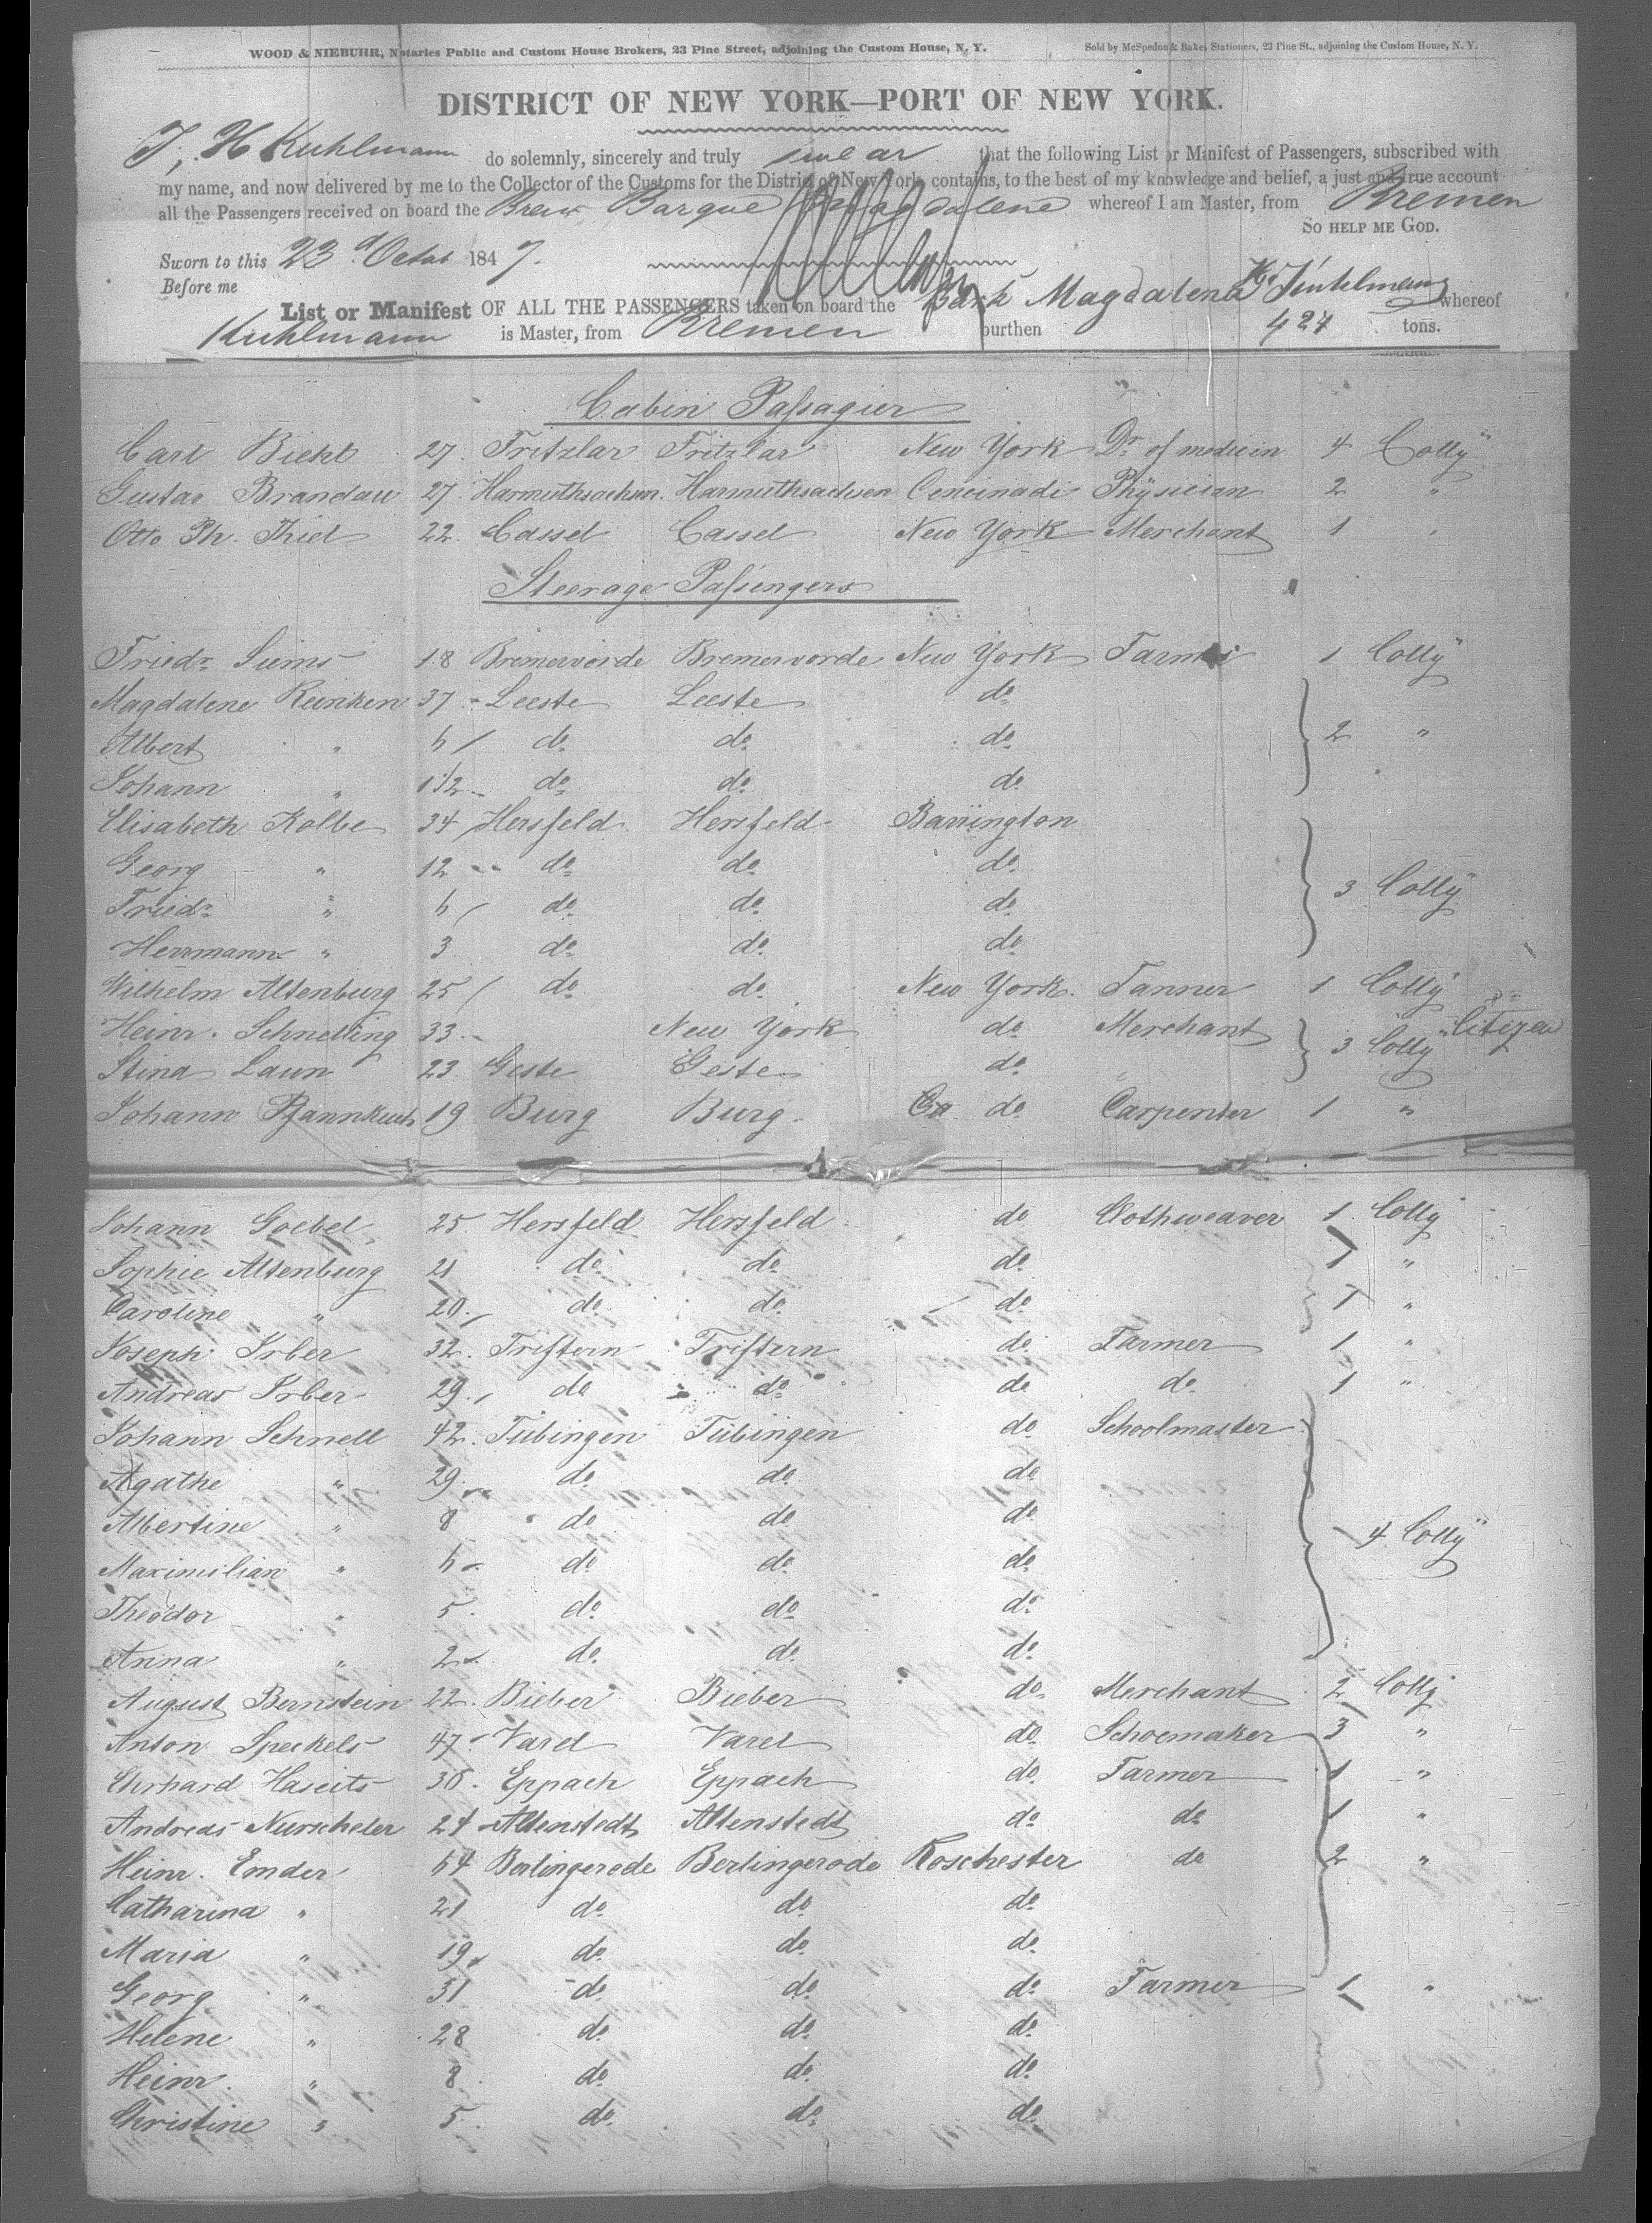 WOOD & NIEBUHR, Notaries Public and Custom House Brokers, 23 Pine Street, adjoining the Custom House, N. Y. Sold by McSpedon & Baker, Stationers, 23 Pine St., adjoining the Custom House, N. Y.
DISTRICT OF NEW YORK—PORT OF NEW YORK.
I, H Kuhlmann do solemnly, sincerely and truly swear that the following List or Manifest of Passengers, subscribed with
my name, and now delivered by me to the Collector of the Customs for the District of New York, contains, to the best of my knowledge and belief, a just and true account
all the Passengers received on board the Brem Barque Magdalene whereof I am Master, from Bremen
SO HELP ME GOD.
Sworn to this 23d Octob 1847.
Before me
List or Manifest OF ALL THE PASSENGERS taken on board the Bark Magdalena whereof
Kuhlmann is Master, from Bremen burthen 424 tons.
Cabin Passagier
Carl Biehl 27. Fritzlar Fritzlar New York Dr. of medicin 4 Colly"
Gustav Brandau 27. Harmuthsachsen. Harmuthsachsen Cincinadi Physician 2 "
Otto Ph. Thiel 22. Cassel Cassel New York Merchant 1 "
Steerage Passengers
Friedr. Siems 18 Bremervörde Bremervorde New York Farmer 1 Colly"
Magdalene Reinken 37 Leeste Leeste do
Albert " 6 do do do 2 "
Johann " 1 1/2 do do do
Elisabeth Kolbe 34 Hersfeld Hersfeld Barrington
Georg " 12 do do do
Friedr " 6 do do do 3 Colly"
Herrmann " 3 do do do
Wilhelm Altenburg 25 do do New York. Tanner 1 Colly"
Heinr. Schnelling 33 New York do Merchant 3 Colly" Citizen
Stina Laun 23 Geste Geste do
Johann Pfannkuch 19 Burg Burg do Carpenter 1 "
Johann Goebel 25 Hersfeld Hersfeld do Clothweaver 1 Colly"
Sophie Altenburg 21 do do do 1 "
Caroline " 20 do do do 1 "
Joseph Irber 32. Triftern Triftern do Farmer 1 "
Andreas Irber 29. do do do do 1 "
Johann Schnell 42. Tübingen Tübingen do Schoolmaster
Agathe " 29 do do do
Albertine " 8 do do do 4 Colly"
Maximilian " 6 do do do
Theodor " 5. do do do
Anna " 2 do do do
August Bernstein 22. Bieber Bieber do Merchant 2 Colly
Anton Speckels 47 Varel Varel do Schoemaker 3 "
Ehrhard 36. Eppach Eppach do Farmer 1 "
Andreas Nurscheler 24 Altenstedt Altenstedt do do 1 "
Heinr. Emder 64 Berlingerode Berlingerode Roschester do 2 "
Catharina " 21 do do do
Maria " 19 do do do
Georg " 31 do do do Farmer 1 "
Helene " 28 do do do
Heinr. " 8 do do do
Christine " 5. do do do